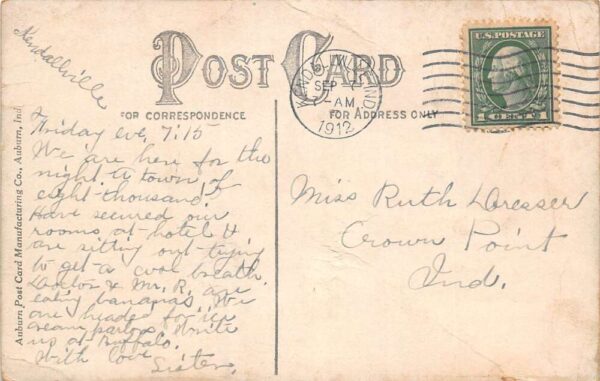 Kendallville
POST CARD
FOR CORRESPONDENCE
FOR ADDRESS ONLY
KENDALLVILLE, IND.
SEP 7
AM
1912
U.S. POSTAGE
1 CENT 1
Auburn Post Card Manufacturing Co., Auburn, Ind.
Friday eve, 7:15
We are here for the
night a town of
eight thousand.
Have secured our
rooms at hotel &
are sitting out trying
to get a cool breath.
Doctor & Mr. R. are
eating bananas. We
are headed for ice
cream parlor. Write
us at Buffalo.
With love
Sister.
Miss Ruth Dresser
Crown Point
Ind.